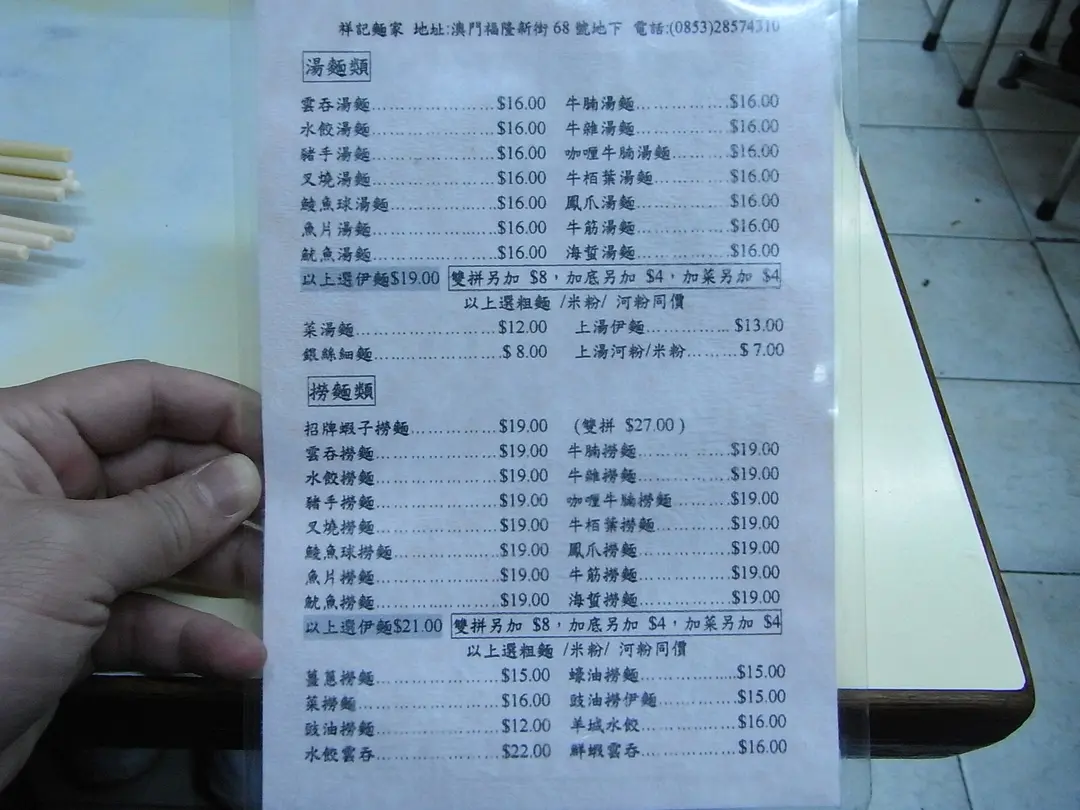 祥記麵家 地址:澳門福隆新街 68 號地下 電話:(0853)28574310
湯麵類
雲吞湯麵……………$16.00 牛腩湯麵……………$16.00
水餃湯麵……………$16.00 牛雜湯麵……………$16.00
豬手湯麵……………$16.00 咖喱牛腩湯麵………$16.00
叉燒湯麵……………$16.00 牛栢葉湯麵…………$16.00
鯪魚球湯麵…………$16.00 鳳爪湯麵……………$16.00
魚片湯麵……………$16.00 牛筋湯麵……………$16.00
魷魚湯麵……………$16.00 海蜇湯麵……………$16.00
以上選伊麵$19.00 雙拼另加 $8，加底另加 $4，加菜另加 $4
以上選粗麵 /米粉/ 河粉同價
菜湯麵………………$12.00 上湯伊麵……………$13.00
銀絲細麵……………$ 8.00 上湯河粉/米粉………$ 7.00
撈麵類
招牌蝦子撈麵…………$19.00 (雙拼 $27.00 )
雲吞撈麵……………$19.00 牛腩撈麵……………$19.00
水餃撈麵……………$19.00 牛雜撈麵……………$19.00
豬手撈麵……………$19.00 咖喱牛腩撈麵………$19.00
叉燒撈麵……………$19.00 牛栢葉撈麵…………$19.00
鯪魚球撈麵…………$19.00 鳳爪撈麵……………$19.00
魚片撈麵……………$19.00 牛筋撈麵……………$19.00
魷魚撈麵……………$19.00 海蜇撈麵……………$19.00
以上選伊麵$21.00 雙拼另加 $8，加底另加 $4，加菜另加 $4
以上選粗麵 /米粉/ 河粉同價
薑蔥撈麵……………$15.00 蠔油撈麵……………$15.00
菜撈麵………………$16.00 豉油撈伊麵…………$15.00
豉油撈麵……………$12.00 羊城水餃……………$16.00
水餃雲吞……………$22.00 鮮蝦雲吞……………$16.00